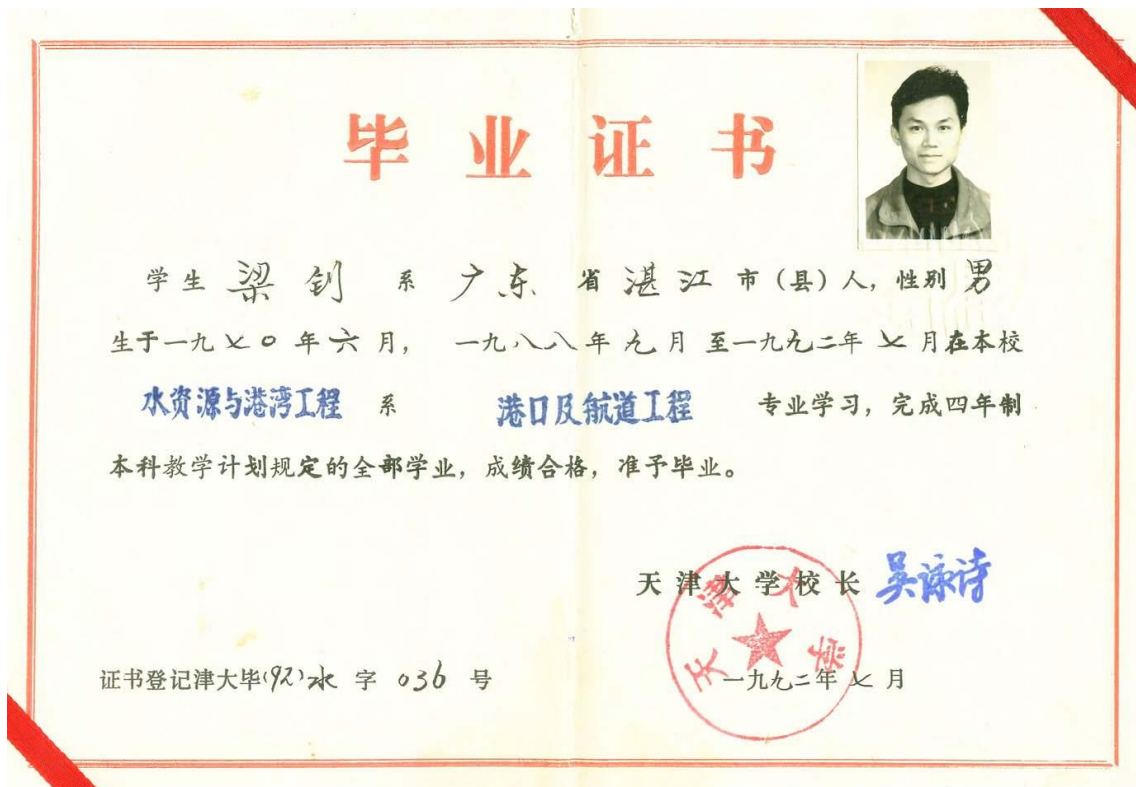 毕业证书
学生 梁钊 系 广东 省 湛江 市（县）人，性别 男
生于一九七〇年六月， 一九八八年九月至一九九二年七月在本校
水资源与港湾工程 系 港口及航道工程 专业学习，完成四年制
本科教学计划规定的全部学业，成绩合格，准予毕业。
天津大学校长 吴咏诗
天津大学
证书登记津大毕(92)水 字 036 号
一九九二年七月